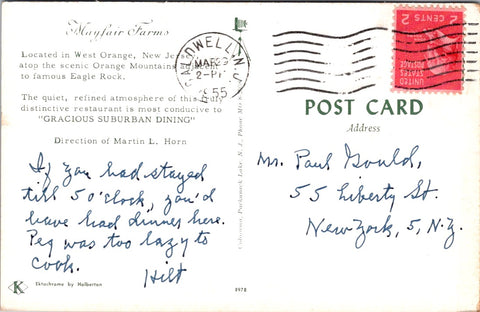 Mayfair Farms
Located in West Orange, New Jersey
atop the scenic Orange Mountains adjacent
to famous Eagle Rock.
The quiet, refined atmosphere of this truly
distinctive restaurant is most conducive to
"GRACIOUS SUBURBAN DINING"
Direction of Martin L. Horn
If you had stayed
till 5 o'clock, you'd
have had dinner here.
Peg was too lazy to
cook.
Hilt
K
Ektachrome by Halberton
CALDWELL N.J.
MAR
2-PM
1955
2 CENTS 2
UNITED
STATES
POSTAGE
POST CARD
Address
Mr. Paul Gould,
55 Liberty St.
New York, 5, N.Y.